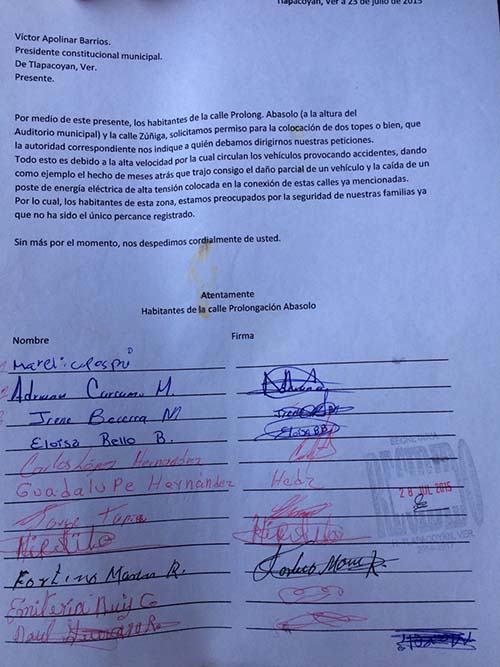 Tlapacoyan, Ver a 23 de julio de 2015
Víctor Apolinar Barrios.
Presidente constitucional municipal.
De Tlapacoyan, Ver.
Presente.
Por medio de este presente, los habitantes de la calle Prolong. Abasolo (a la altura del
Auditorio municipal) y la calle Zúñiga, solicitamos permiso para la colocación de dos topes o bien, que
la autoridad correspondiente nos indique a quién debamos dirigirnos nuestras peticiones.
Todo esto es debido a la alta velocidad por la cual circulan los vehículos provocando accidentes, dando
como ejemplo el hecho de meses atrás que trajo consigo el daño parcial de un vehículo y la caída de un
poste de energía eléctrica de alta tensión colocada en la conexión de estas calles ya mencionadas.
Por lo cual, los habitantes de esta zona, estamos preocupados por la seguridad de nuestras familias ya
que no ha sido el único percance registrado.
Sin más por el momento, nos despedimos cordialmente de usted.
Atentamente
Habitantes de la calle Prolongación Abasolo
Nombre Firma
Adrian M.
Irene Becerra M Irene
Eloisa Bello B. Eloisa BB
Carlos López Hernandez
Guadalupe Hernández Hedz
28 JUL 2015
TLAPACOYAN, VER
Fortino R.
Emiteria Ruiz C
Raul